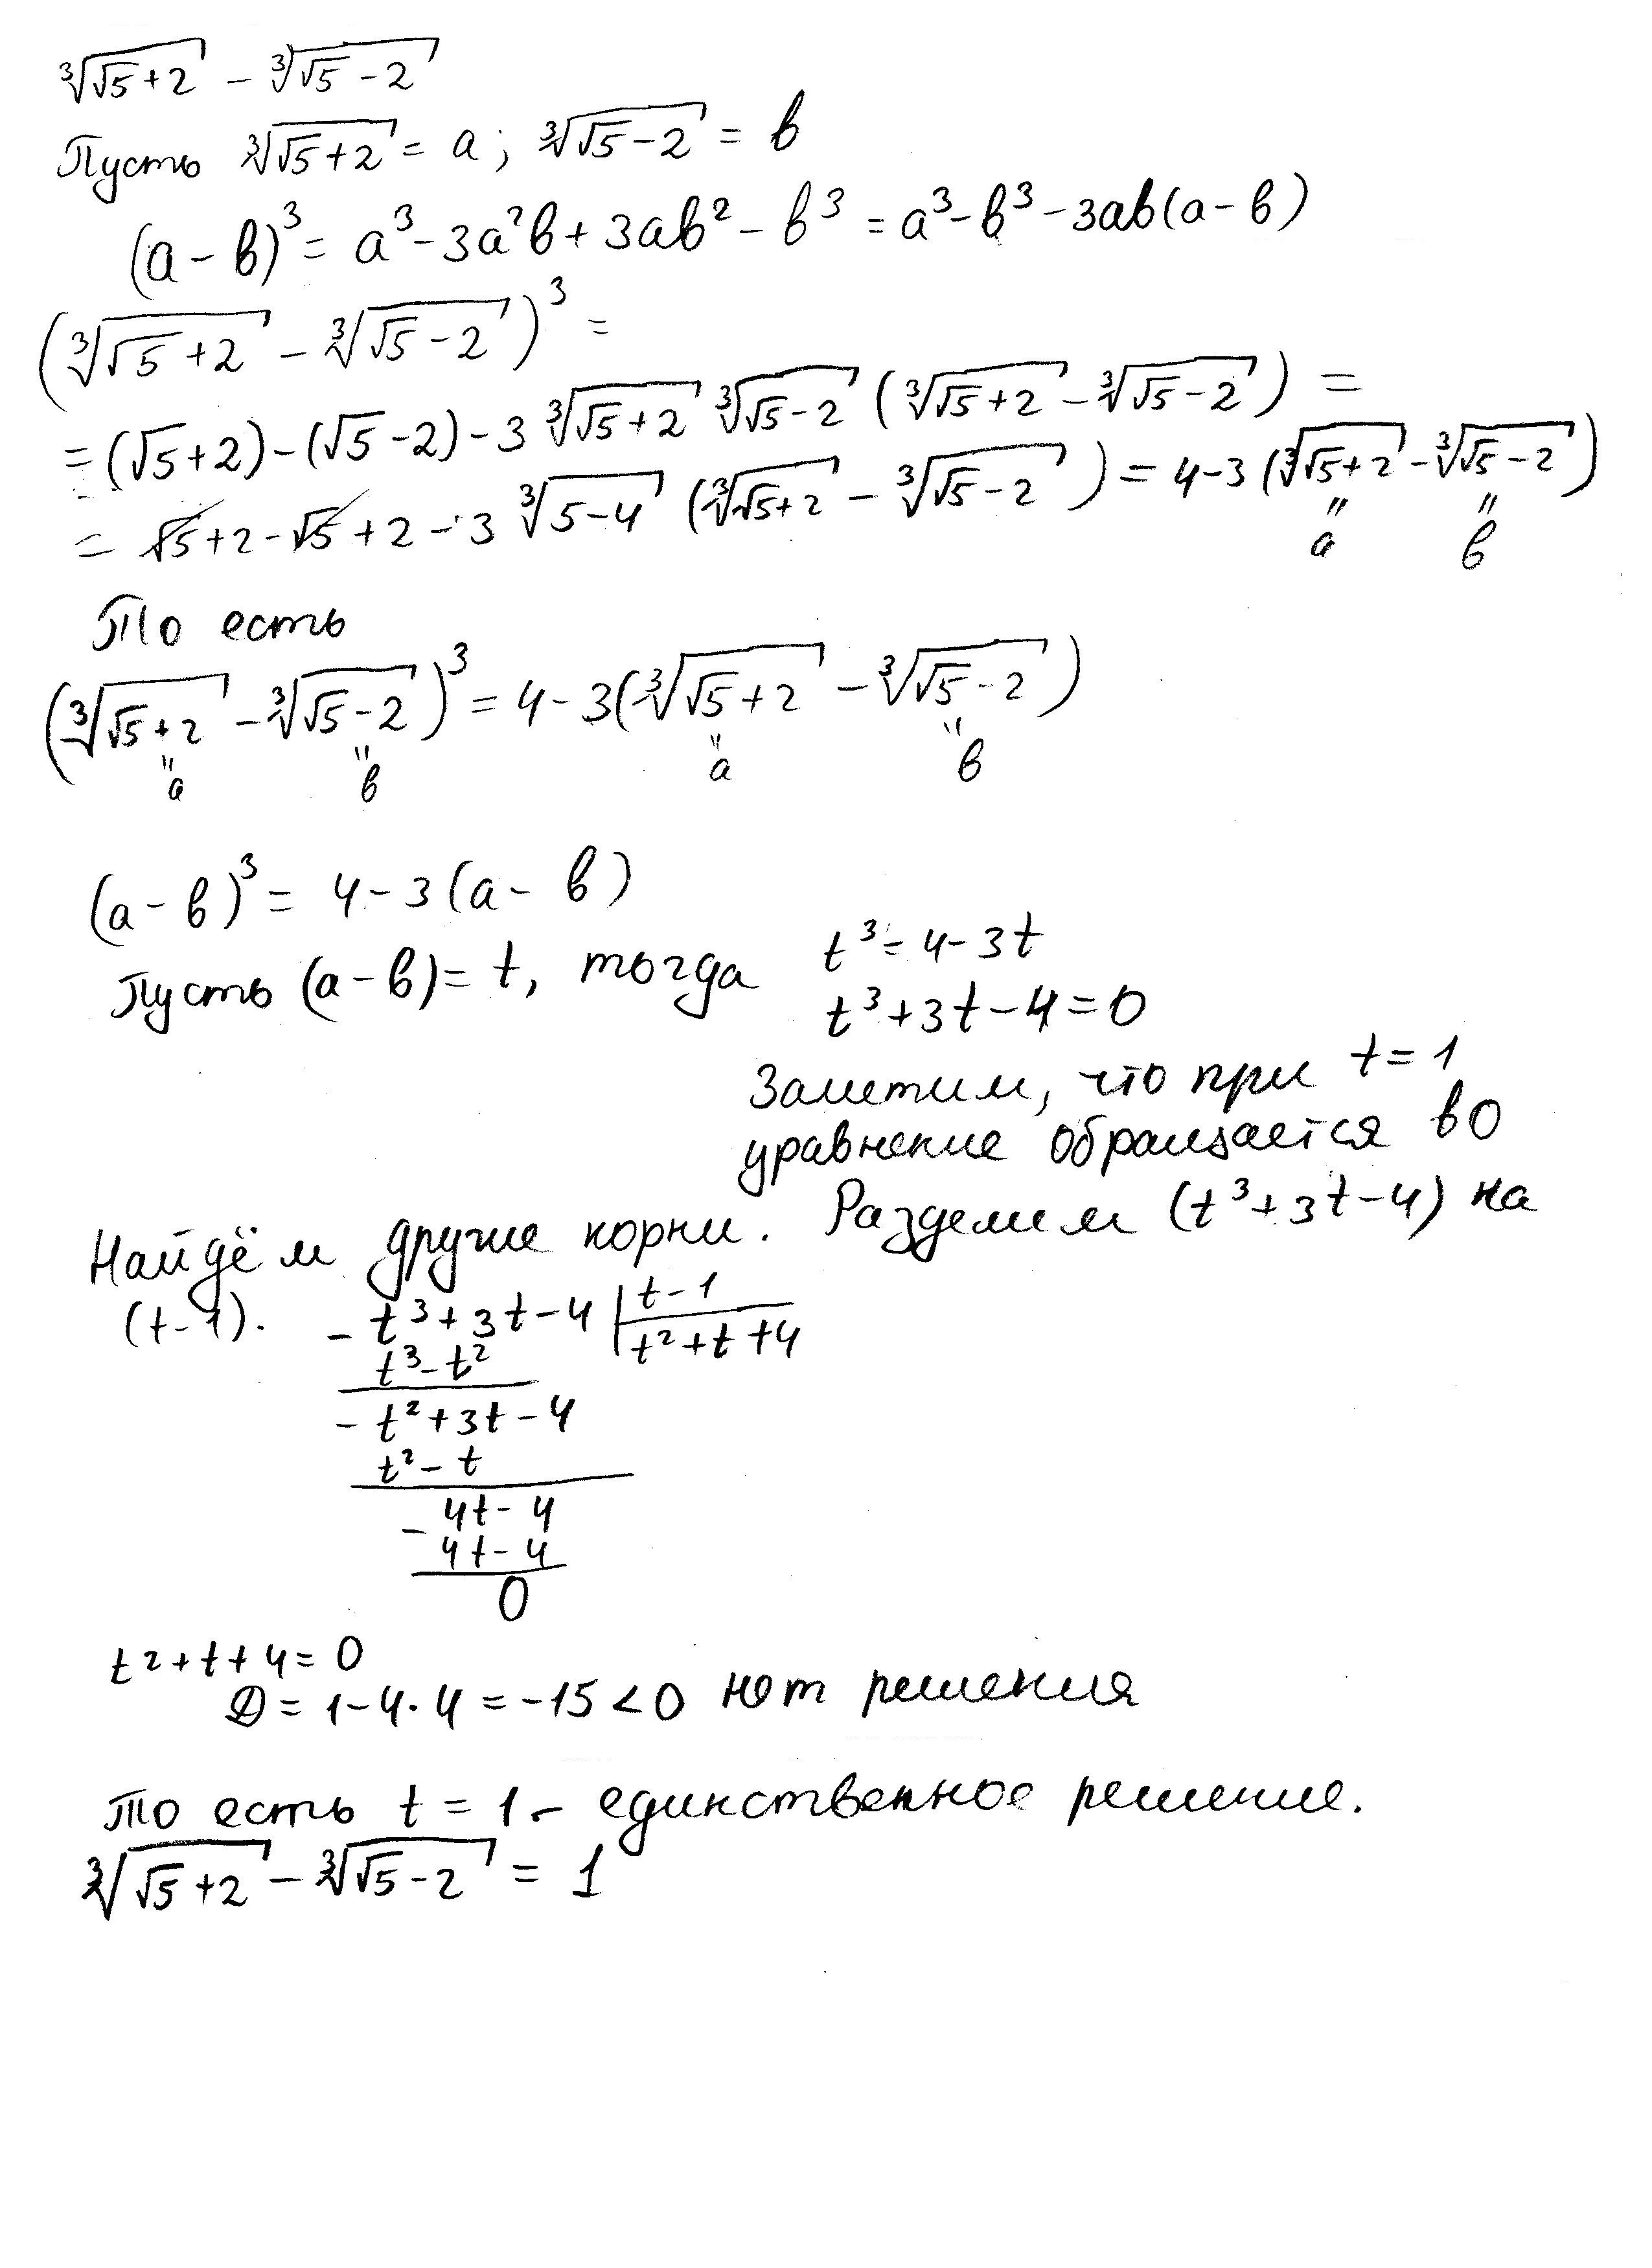 ∛(√5+2) - ∛(√5-2)
Пусть ∛(√5+2) = a; ∛(√5-2) = в
(a-в)³ = a³-3a²в+3aв²-в³ = a³-в³-3aв(a-в)
(∛(√5+2) - ∛(√5-2))³ =
= (√5+2)-(√5-2)-3∛(√5+2) ∛(√5-2) (∛(√5+2) - ∛(√5-2)) =
= √5+2-√5+2-3∛(5-4) (∛(√5+2) - ∛(√5-2)) = 4-3(∛(√5+2) - ∛(√5-2))
" "
a в
То есть
(∛(√5+2) - ∛(√5-2))³ = 4-3(∛(√5+2) - ∛(√5-2))
" " " "
a в a в
(a-в)³ = 4-3(a-в)
Пусть (a-в) = t, тогда t³ = 4-3t
t³+3t-4=0
Заметим, что при t=1
уравнение обращается в 0
Найдём другие корни. Разделим (t³+3t-4) на
(t-1). - t³+3t-4 | t-1
t³-t² t²+t+4
- t²+3t-4
t²-t
- 4t-4
4t-4
0
t²+t+4=0
D = 1-4·4 = -15 < 0 нет решения
То есть t = 1 - единственное решение.
∛(√5+2) - ∛(√5-2) = 1